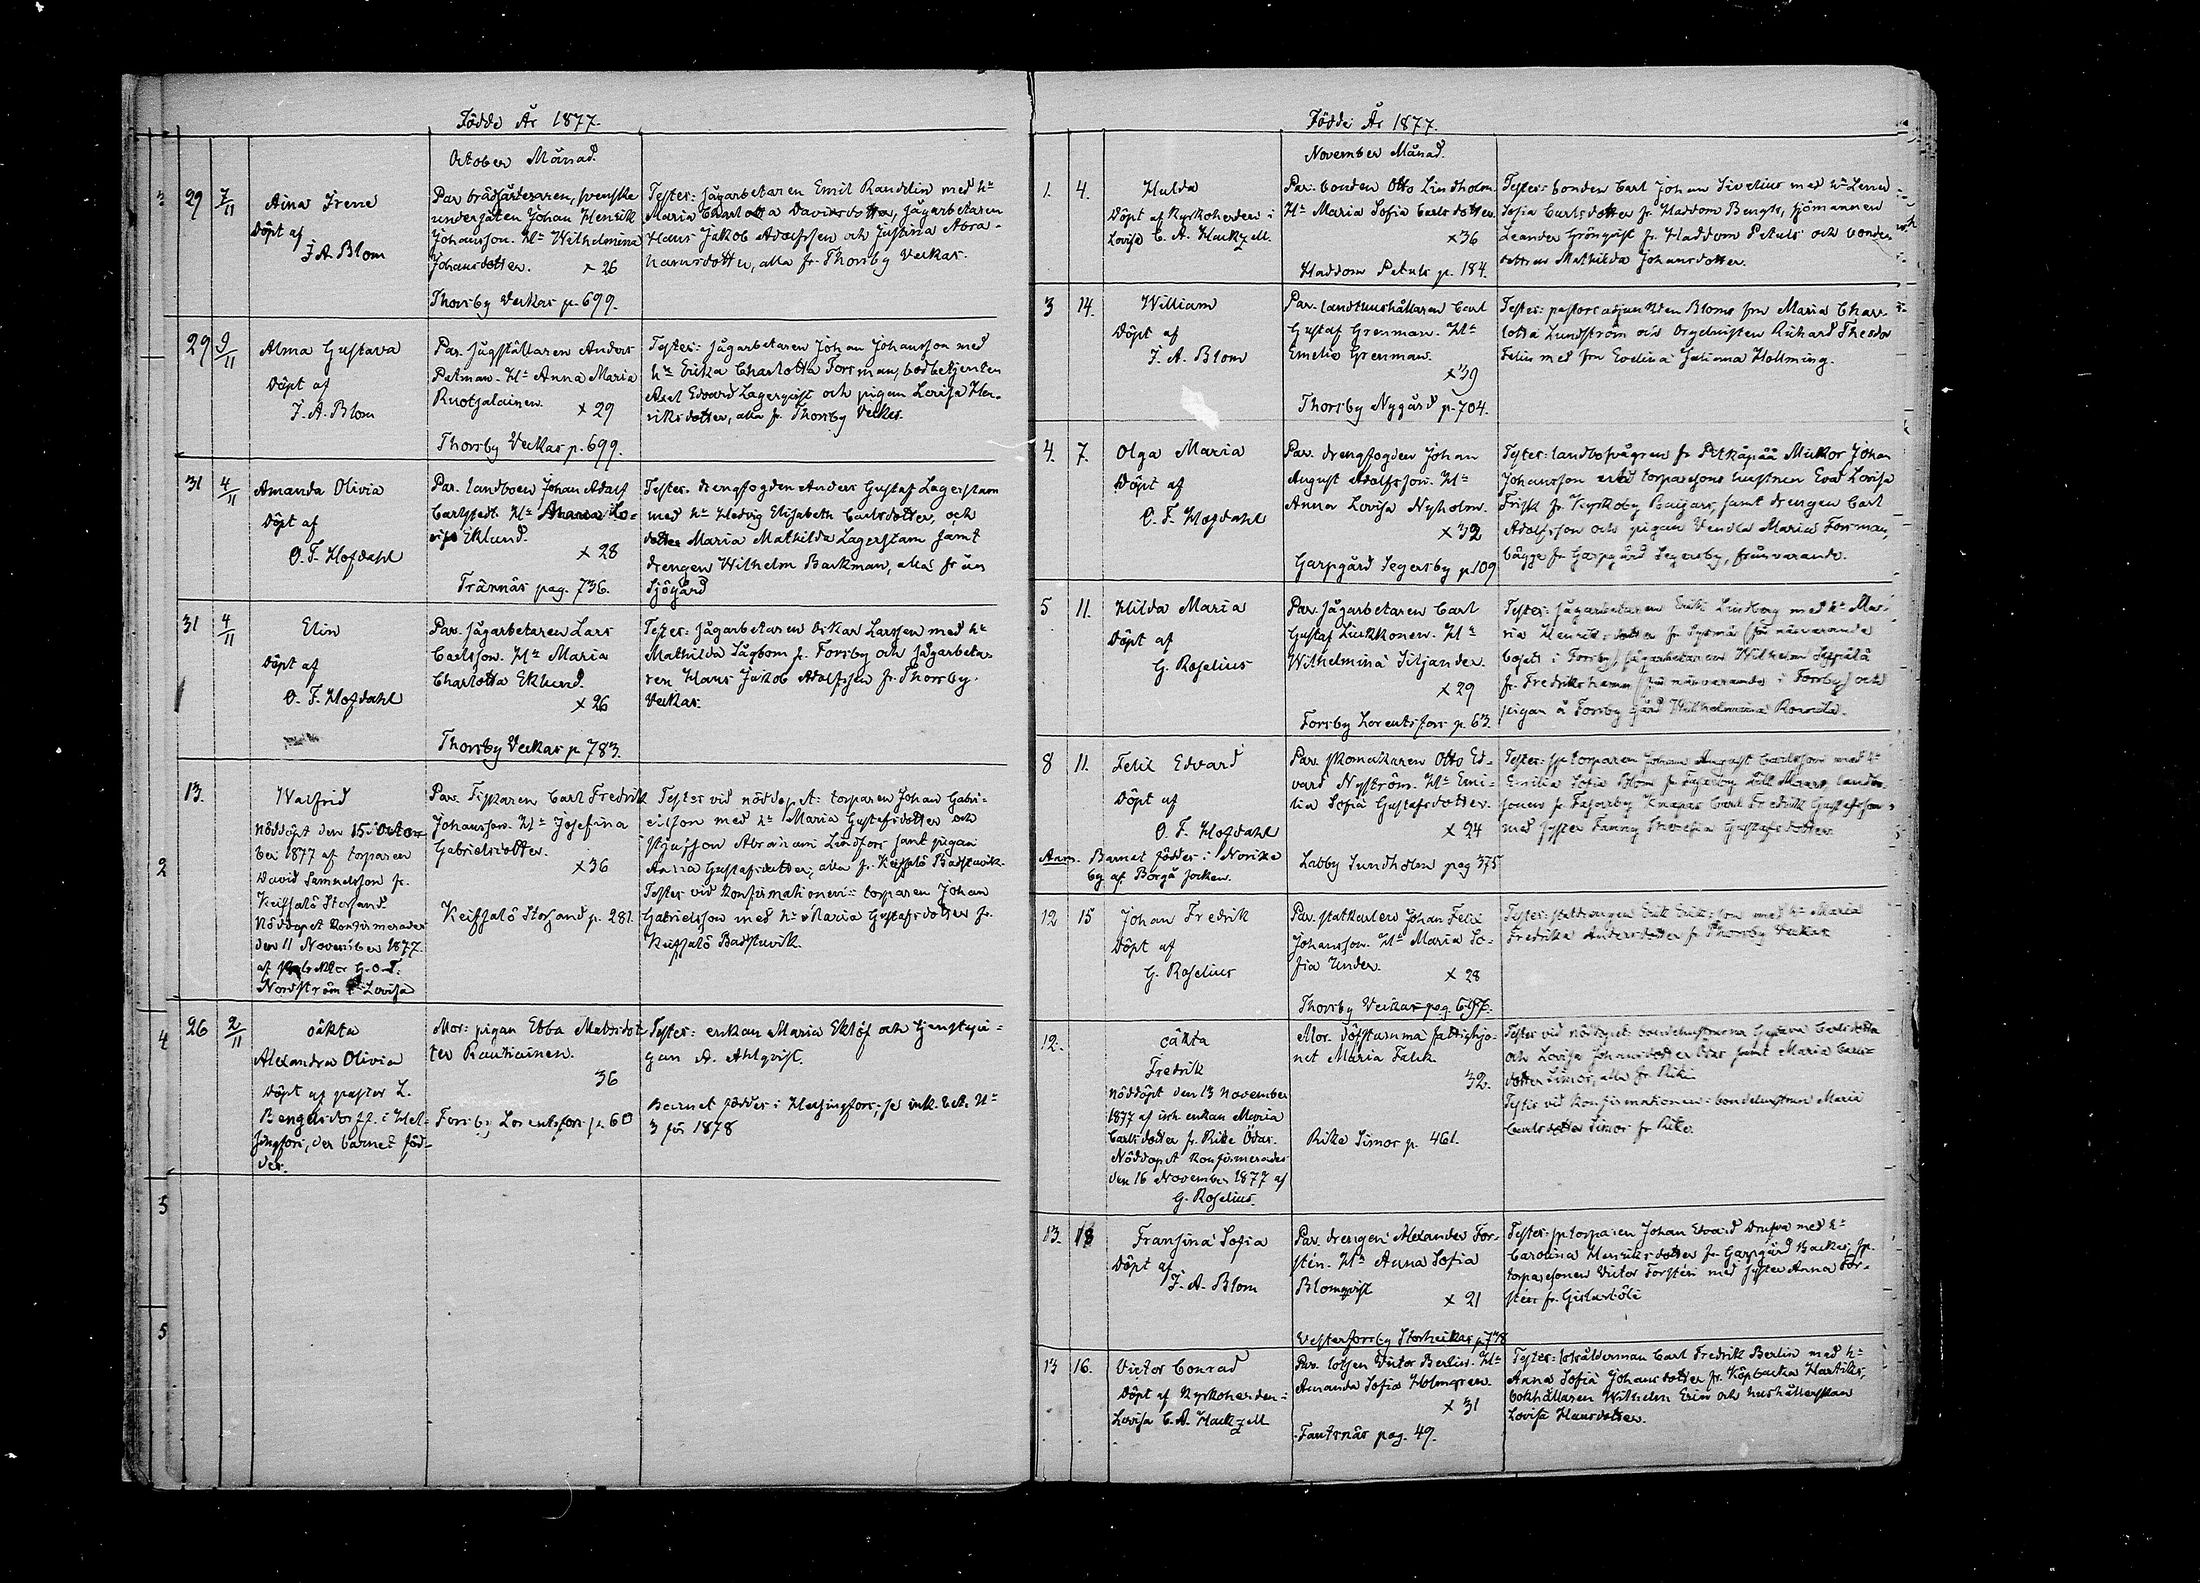 Födde År 1877.
October Månad.
29 7/11 Aina Irene
Döpt af
J. A. Blom
Par. brädfärderaren, svenske
undersåten Johan Henrik
Johansson. H:n Wilhelmina
Johansdotter. x 26
Thorsby Verkas p. 699.
Testes: sågarbetaren Emil Randelin med h:n
Maria Charlotta Davidsdotter, sågarbetaren
Hans Jakob Adolfsson och Justina Abra-
hamsdotter, alla fr. Thorsby Verkas.
29 9/11 Alma Gustava
Döpt af
J. A. Blom
Par. sågställaren Anders
Patman. H:n Anna Maria
Ruotsalainen. x 29
Thorsby Verkas p. 699.
Testes: sågarbetaren Johan Johansson med
h:n Erika Charlotta Forsman, bodbetjenten
Axel Edvard Lagerqvist och pigan Lovisa Hen-
riksdotter, alla fr. Thorsby Verkas.
31 4/11 Amanda Olivia
Döpt af
O. F. Hofdahl
Par. landboen Johan Adolf
Carlstedt. H:n Maria Lo-
visa Eklund.
x 28
Trännäs pag. 736.
Testes. drengfogden Anders Gustaf Lagerstam
med h:n Hedvig Elisabeth Carlsdotter, och
Maria Mathilda Lagerstam samt
drengen Wilhelm Barkman, alla från
Sjögård
31 4/11 Elin
Döpt af
O. F. Hofdahl
Par. sågarbetaren Lars
Carlsson. H:n Maria
Charlotta Eklund.
x 26
Thorsby Verkas p. 783.
Testes: sågarbetaren Oskar Larsson med h:n
Mathilda Sågbom fr. Forsby och sågarbeta-
ren Hans Jakob Adolfsson fr. Thorsby
Verkas.
2 13. Walfrid
Nöddöpt den 15 Octo-
ber 1877 af torparen
David Samuelsson fr.
Keifsalö Storsand.
Nöddopet konfirmerades
den 11 November 1877
af G. O. T.
Nordström i Lovisa
Par. Fiskaren Carl Fredrik
Johansson. H:n Josefina
Gabrielsdotter.
x 36
Keifsalö Storsand p. 281.
Testes vid nöddopet: torparen Johan Gabri-
elsson med h:n Maria Gustafsdotter och
Abraham Lindfors samt pigan
Anna Gustafsdotter, alla fr. Keifsalö Badstuvik.
Testes vid konfirmationen: torparen Johan
Gabrielsson med h:n Maria Gustafsdotter fr.
Keifsalö Badstuvik.
4 26 2/11 oäkta
Alexandra Olivia
Döpt af pastor L.
Bengelsdorff i Hel-
singfors, der barnet föd-
des.
Mor: pigan Ebba Matsdot
ter Rautiainen.
36
Forsby Lorentsfors p. 60
Testes: enkan Maria Eklöf och tjenstepi-
gan A. Ahlqvist.
Barnet föddes i Helsingfors, se ink. bet. N:o
3 för 1878
5
5
Födde År 1877.
November Månad.
1. 4. Hulda
Döpt af Kyrkoherden i
Lovisa C. A. Hackzell.
Par. bonden Otto Lindholm
H:n Maria Sofia Carlsdotter.
x 36
Haddom Petuls p. 184.
Testes: bonden Carl Johan Sivelius med h:n Lena
Sofia Carlsdotter fr. Haddom Bengts, sjömannen
Leander Grönqvist fr. Haddom Petuls och bonde-
dottren Mathilda Johansdotter.
3 14. William
Döpt af
J. A. Blom
Par. landthushållaren Carl
Gustaf Grenman. H:n
Emelie Grenman.
x 39
Thorsby Nygård p. 704.
Testes: pastorsadjunkten Bloms fru Maria Char-
lotta Lundström och Orgelnisten Richard Theodor
Felin med fru Evelina Juliana Hollming.
4. 7. Olga Maria
Döpt af
O. F. Hofdahl
Par. drengfogden Johan
August Adolfsson. H:n
Anna Lovisa Nyholm.
x 32
Garpgård Segersby p. 109
Testes: landbosvågren fr. Pitkäpää Mickor Johan
Johansson och torparesons hustrun Eva Lovisa
Frisk fr. Kyrkoby Baijars, samt drengen Carl
Adolfsson och pigan Vendla Maria Forsman,
bägge fr. Garpgård Segersby, frånvarande.
5 11. Hilda Maria
Döpt af
G. Roselius
Par. sågarbetaren Carl
Gustaf Liukkonen. H:n
Wilhelmina Siljander.
x 29
Forsby Lorentsfors p. 63.
Testes: sågarbetaren Erik Lindberg med h:n Ma-
ria Henriksdotter fr. Sysmä (för närvarande
bosatt i Forsby) sågarbetaren Wilhelm Seppälä
fr. Fredrikshamn (för närvarande i Forsby) och
pigan å Forsby gård Wilhelmina
8 11. Felix Edvard
Döpt af
O. F. Hofdahl
Anm. Barnet föddes i Norike
by af Borgå socken.
Par. skomakaren Otto Ed-
vard Nyström. H:n Emi-
lia Sofia Gustafsdotter.
x 24
Labby Sundholm pag 375
Testes: sp:torparen Johan August Carlsson med h:n
Emilia Sofia Blom fr. landbo-
sonen fr. Fasarby Knapas Carl Fredrik Gustafsson
med syster Fanny Theresia Gustafsdotter
12 15 Johan Fredrik
Döpt af
G. Roselius
Par. statkarlen Johan Felix
Johansson. H:n Maria So-
fia Under.
x 28
Thorsby Verkas pag. 697.
Testes: statdrengen Erik Eriksson med h:n Maria
Fredrika Andersdotter fr. Thorsby Verkas
12. oäkta
Fredrik
Nöddöpt den 13 November
1877 af inh. enkan Maria
Carlsdotter fr. Rike Ödas.
Nöddopet konfirmerades
den 16 November 1877 af
G. Roselius.
Mor. döfstumma fattighjo-
net Maria Falck
32.
Rike Simos p. 461.
Testes vid nöddopet: bondehustrurna Gustava Carlsdotter
och Lovisa Johansdotter Ödas samt Maria Carls-
dotter Simos, alla fr. Rike.
Testes vid konfirmationen: bondehustrun Maria
Carlsdotter Simos fr. Rike.
13. 18 Fransina Sofia
Döpt af
J. A. Blom
Par. drengen Alexander For-
stén. H:n Anna Sofia
Blomqvist
x 21
Vesterforsby Storheikas p. 778
Testes: sp:torparen Johan Edvard Drufva med h:n
Carolina Henriksdotter fr. Garpgård Backas, sp.
torparesonen Victor Forstén med syster Anna For-
stén fr. Gislarböle
13 16. Victor Conrad
Döpt af Kyrkoherden i
Lovisa C. A. Hackzell
Par. lotsen Victor Berlin. H:n
Amanda Sofia Holmgren.
x 31
Fantsnäs pag. 49.
Testes: lotsålderman Carl Fredrik Berlin med h:n
Anna Sofia Johansdotter fr. Köpbacka Hartikas,
bokhållaren Wilhelm Erin och hushållerskan
Lovisa Hansdotter.